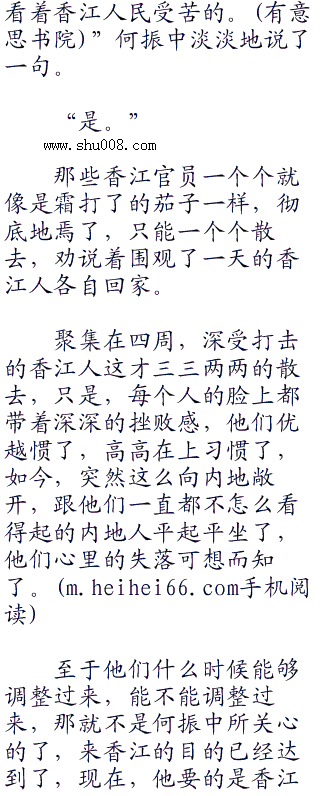 看着香江人民受苦的。(有意
思书院)”何振中淡淡地说了
一句。
“是。”
www.shu008.com
那些香江官员一个个就
像是霜打了的茄子一样，彻
底地焉了，只能一个个散
去，劝说着围观了一天的香
江人各自回家。
聚集在四周，深受打击
的香江人这才三三两两的散
去，只是，每个人的脸上都
带着深深的挫败感，他们优
越惯了，高高在上习惯了，
如今，突然这么向内地敞
开，跟他们一直都不怎么看
得起的内地人平起平坐了，
他们心里的失落可想而知
了。(m.heihei66.com手机阅
读)
至于他们什么时候能够
调整过来，能不能调整过
来，那就不是何振中所关心
的了，来香江的目的已经达
到了，现在，他要的是香江